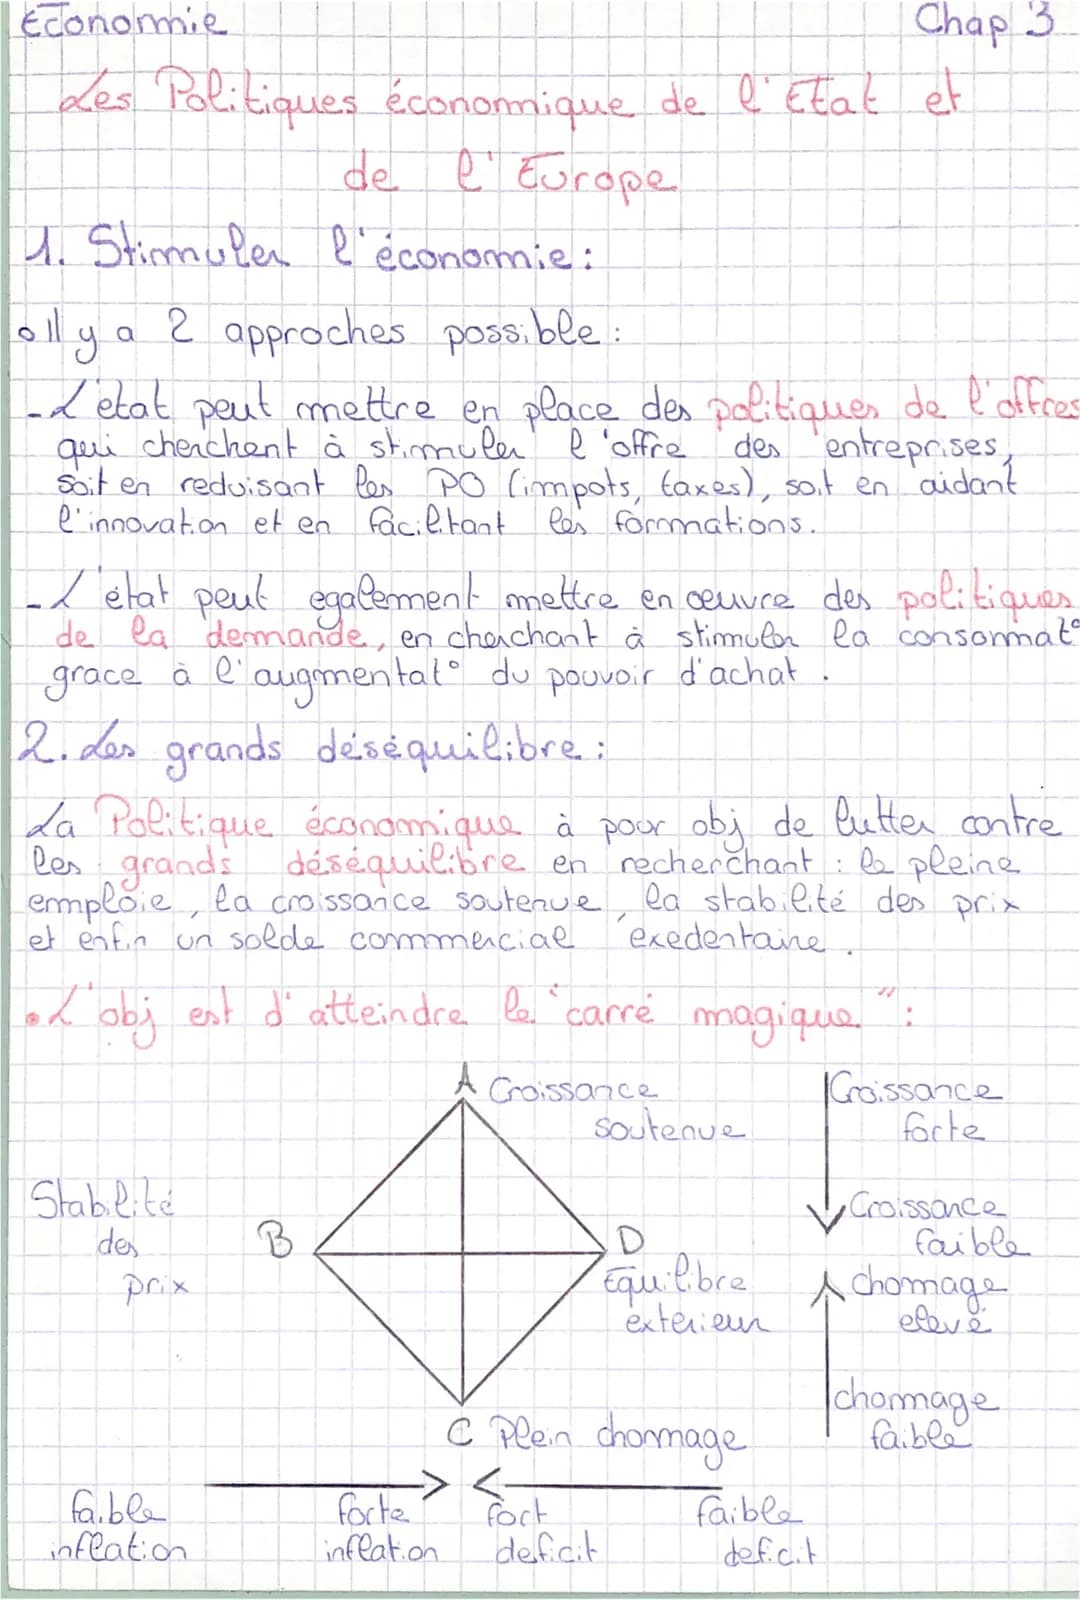 Economie Chap 3
Les Politiques économique de l'Etat et
de l'Europe
1. Stimuler l'économie :
Il y a 2 approches possible :
- L'etat peut mettre en place des politiques de l'offres
qui cherchent à stimuler l'offre des entreprises,
soit en reduisant les PO (impots, taxes), soit en aidant
l'innovation et en facilitant les formations.
- L'état peut egalement mettre en œuvre des politiques
de la demande, en cherchant à stimuler la consommat°
grace à l'augmentat° du pouvoir d'achat.
2. Les grands déséquilibre :
La Politique économique à pour obj de lutter contre
les grands déséquilibre en recherchant : le pleine
emploie, la croissance soutenue, la stabilité des prix
et enfin un solde commercial exedentaire.
• L'obj est d'atteindre le "carré magique" :
A Croissance
soutenue
Croissance
forte
Stabilité
des
prix
B
D
Equilibre
exterieur
Croissance
faible
chomage
elevé
chomage
faible
C Plein chomage
faible
inflation
forte
inflation
fort
deficit
faible
deficit